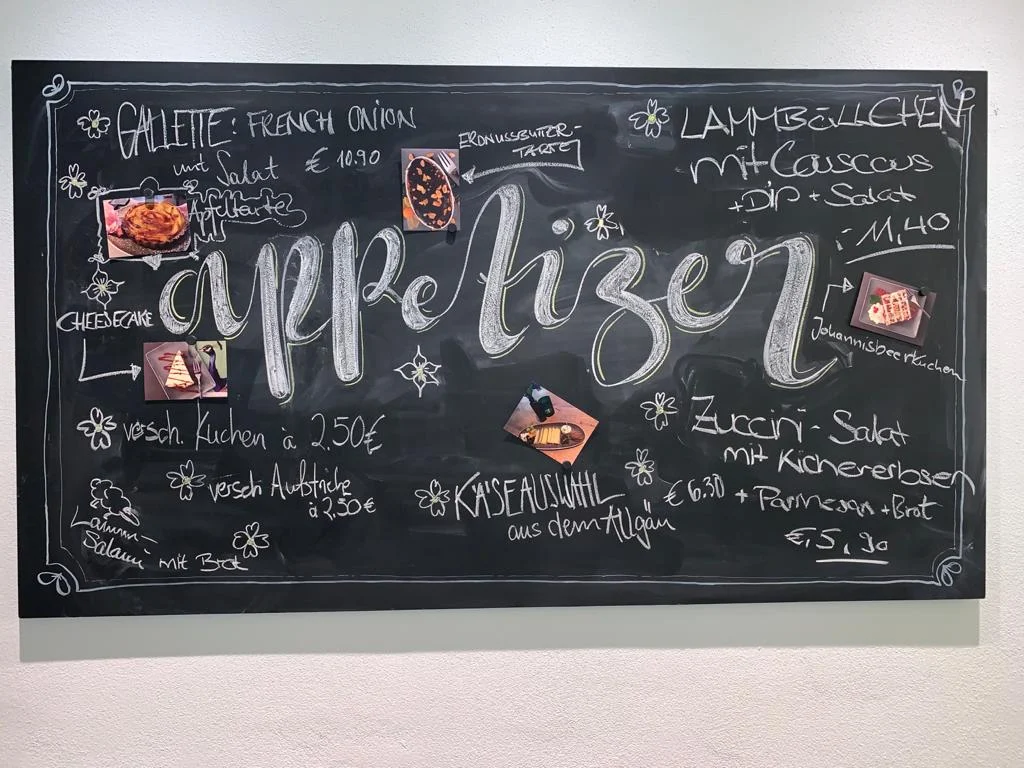 GALLETTE: FRENCH ONION
mit Salat € 10.90
ERDNUSSBUTTER-
TARTE
LAMMBÄLLCHEN
mit Couscous
+ DIP + Salat
11,40
Apfeltarte
appetizer
CHEESECAKE
Johannisbeerkuchen
versch. Kuchen à 2,50€
versch. Aufstriche
à 2,50 €
Lamm-
Salami mit Brot
KÄSEAUSWAHL € 6.30
aus dem Allgäu
Zuccini - Salat
mit Kichererbsen
+ Parmesan + Brot
€ 5,90